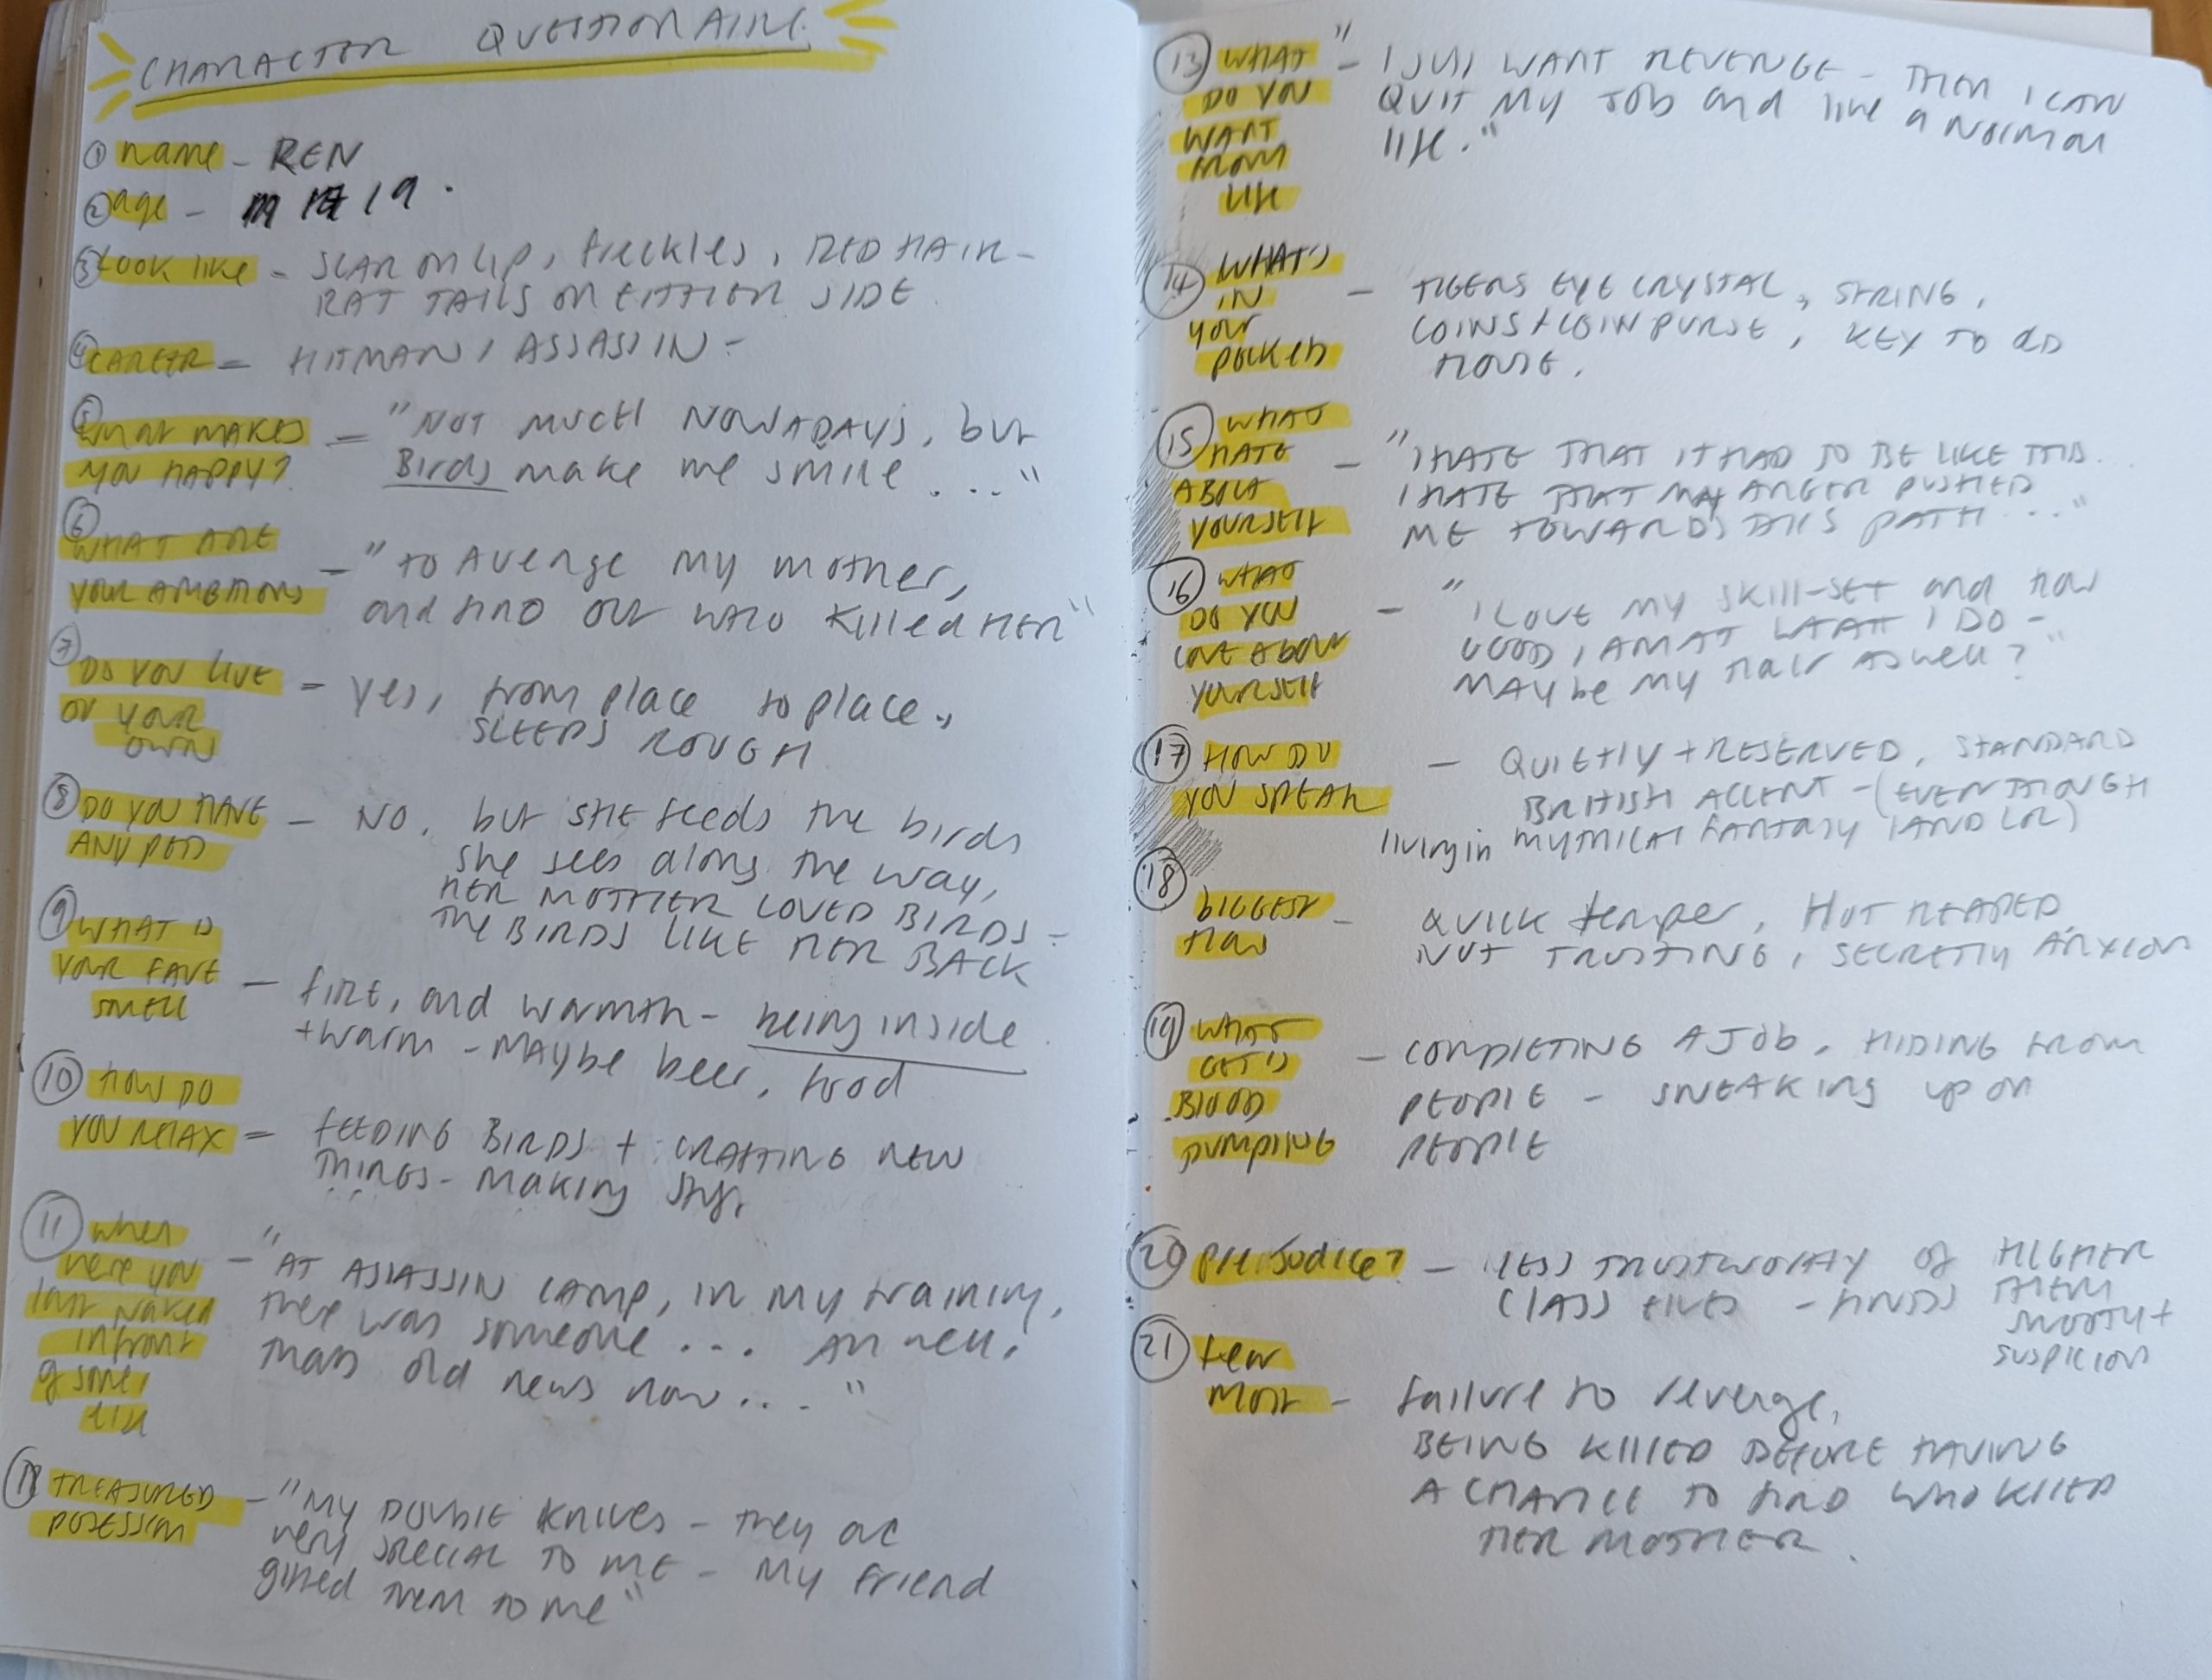 CHARACTER QUESTIONAIRE
① name - REN
② age - 19.
③ Look like - SCAR ON LIP, freckles, RED HAIR -
RAT TAILS ON EITHER SIDE
④ CAREER - HITMAN / ASSASSIN -
⑤ WHAT MAKES YOU HAPPY? - "NOT MUCH NOWADAYS, but
Birds make me smile ...."
⑥ WHAT ARE YOUR AMBITIONS - "to Avenge my mother,
and FIND OUT WHO Killed HER"
⑦ DO YOU LIVE ON YOUR OWN - yes, from place to place,
SLEEPS ROUGH
⑧ DO YOU HAVE ANY PETS - NO, but SHE feeds the birds
she sees along the way,
HER MOTHER LOVED BIRDS -
THE BIRDS LIKE HER BACK
⑨ WHAT IS YOUR FAVE SMELL - fire, and warmth - being inside
+ warm - MAYbe beer, food
⑩ HOW DO YOU RELAX = FEEDING BIRDS + CRAFTING NEW
THINGS - making stuff
⑪ when were you last naked infront of some1 else - "AT ASSASSIN CAMP, in my training,
there was someone ... Ah well,
thats old news now ..."
TREASURED POSESSION - "My DOUBLE KNIVES - they are
very SPECIAL TO ME - My Friend
gifted them to me"
⑬ WHAT DO YOU WANT FROM LIFE - "I JUST WANT REVENGE - THEN I CAN
QUIT My JOB and live a NORMAL
life."
⑭ WHAT'S IN your pockets - TIGERS EYE CRYSTAL, STRING,
COINS + COIN PURSE, KEY TO OLD
HOUSE.
⑮ WHAT HATE ABOUT YOURSELF - "I HATE THAT IT HAD TO BE LIKE THIS..
I HATE THAT MY ANGER PUSHED
ME TOWARDS THIS PATH ..."
⑯ WHAT DO YOU LOVE ABOUT YOURSELF - "I LOVE my SKILL-SET and HOW
GOOD I AM AT WHAT I DO -
MAYbe my Hair AS well?"
⑰ HOW DO YOU SPEAK - QUIETLY + RESERVED, STANDARD
BRITISH ACCENT - (EVEN THOUGH
living in MYTHICAL FANTASY LAND LOL)
⑱ BIGGEST flaw - QUICK temper, HOT HEADED
NOT TRUSTING, SECRETLY ANXIOUS
⑲ WHAT GET'S BLOOD PUMPING - COMPLETING A JOB, HIDING FROM
PEOPLE - SNEAKING up on
PEOPLE
⑳ PREJUDICE? - LESS TRUSTWORTHY of HIGHER
CLASS ELVES - FINDS THEM
SNOOTY +
SUSPICIOUS
㉑ fear most - failure to revenge,
BEING KILLED BEFORE HAVING
A CHANCE TO FIND WHO KILLED
HER MOTHER.